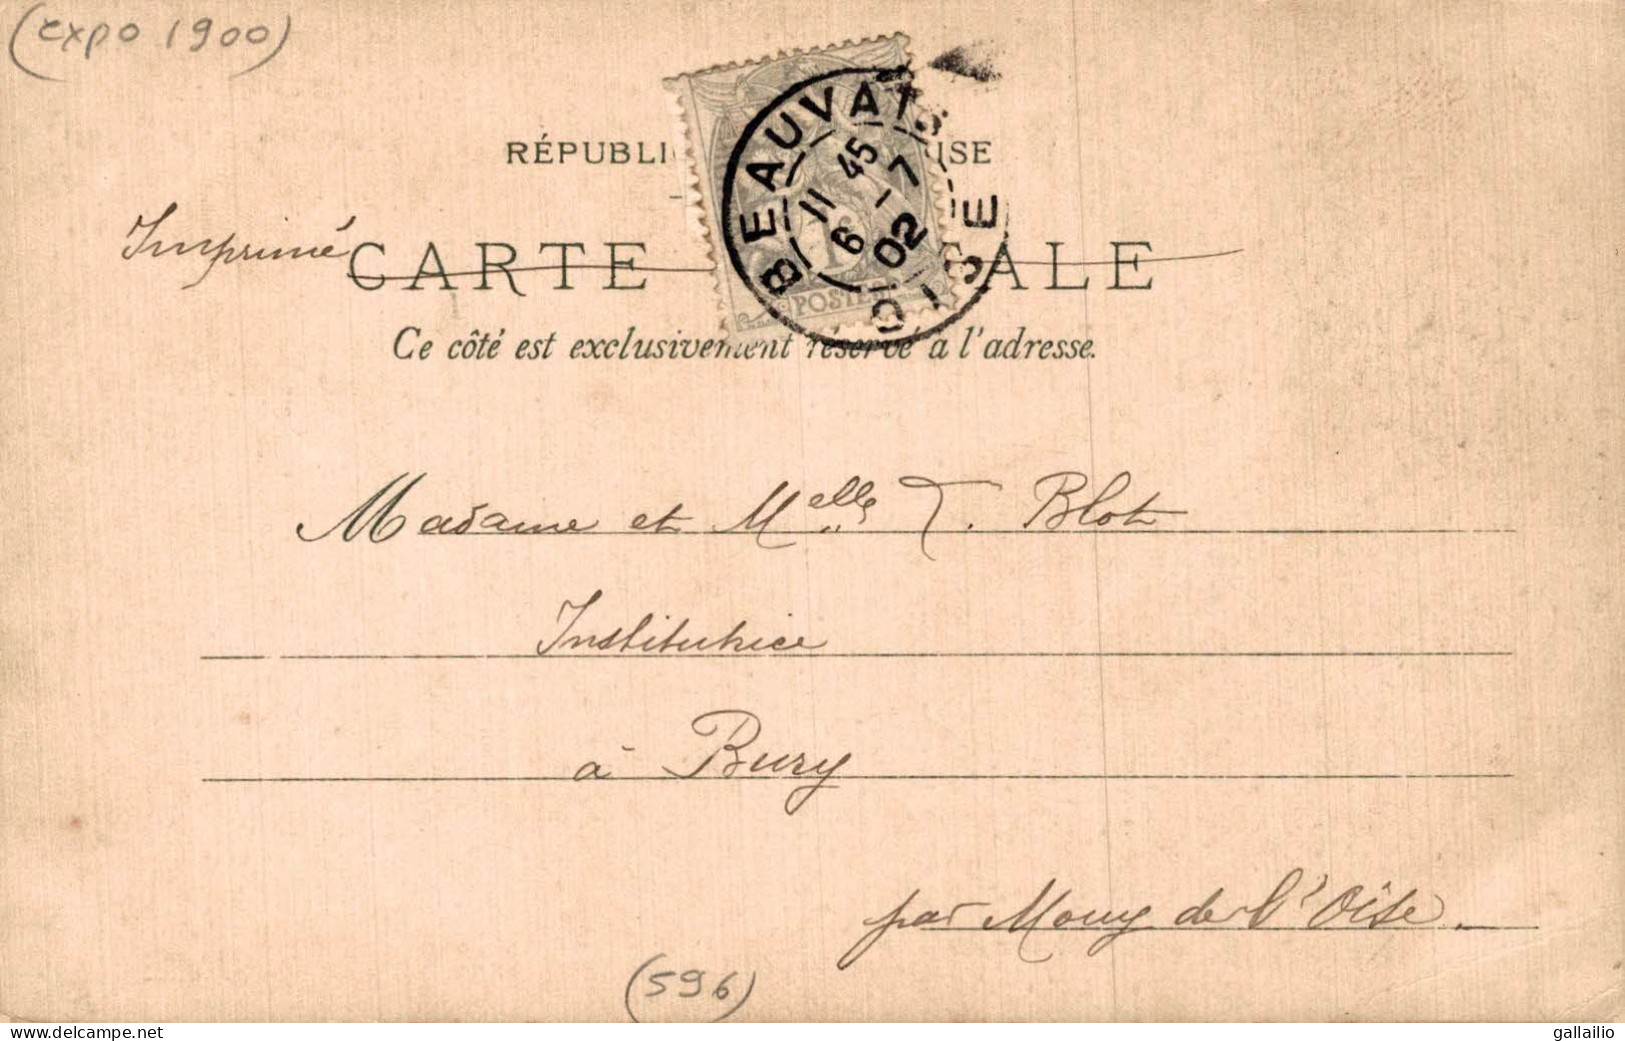 (expo 1900)
RÉPUBLI ISE
BEAUVAIS
11 45
6 - 7
02
OISE
POSTES
Imprimé
CARTE ALE
Ce côté est exclusivement réservé à l'adresse.
Madame et Melle T. Blot
Institutrice
à Bury
par Mouy de l'Oise.
(596)
www.delcampe.net
gallailio